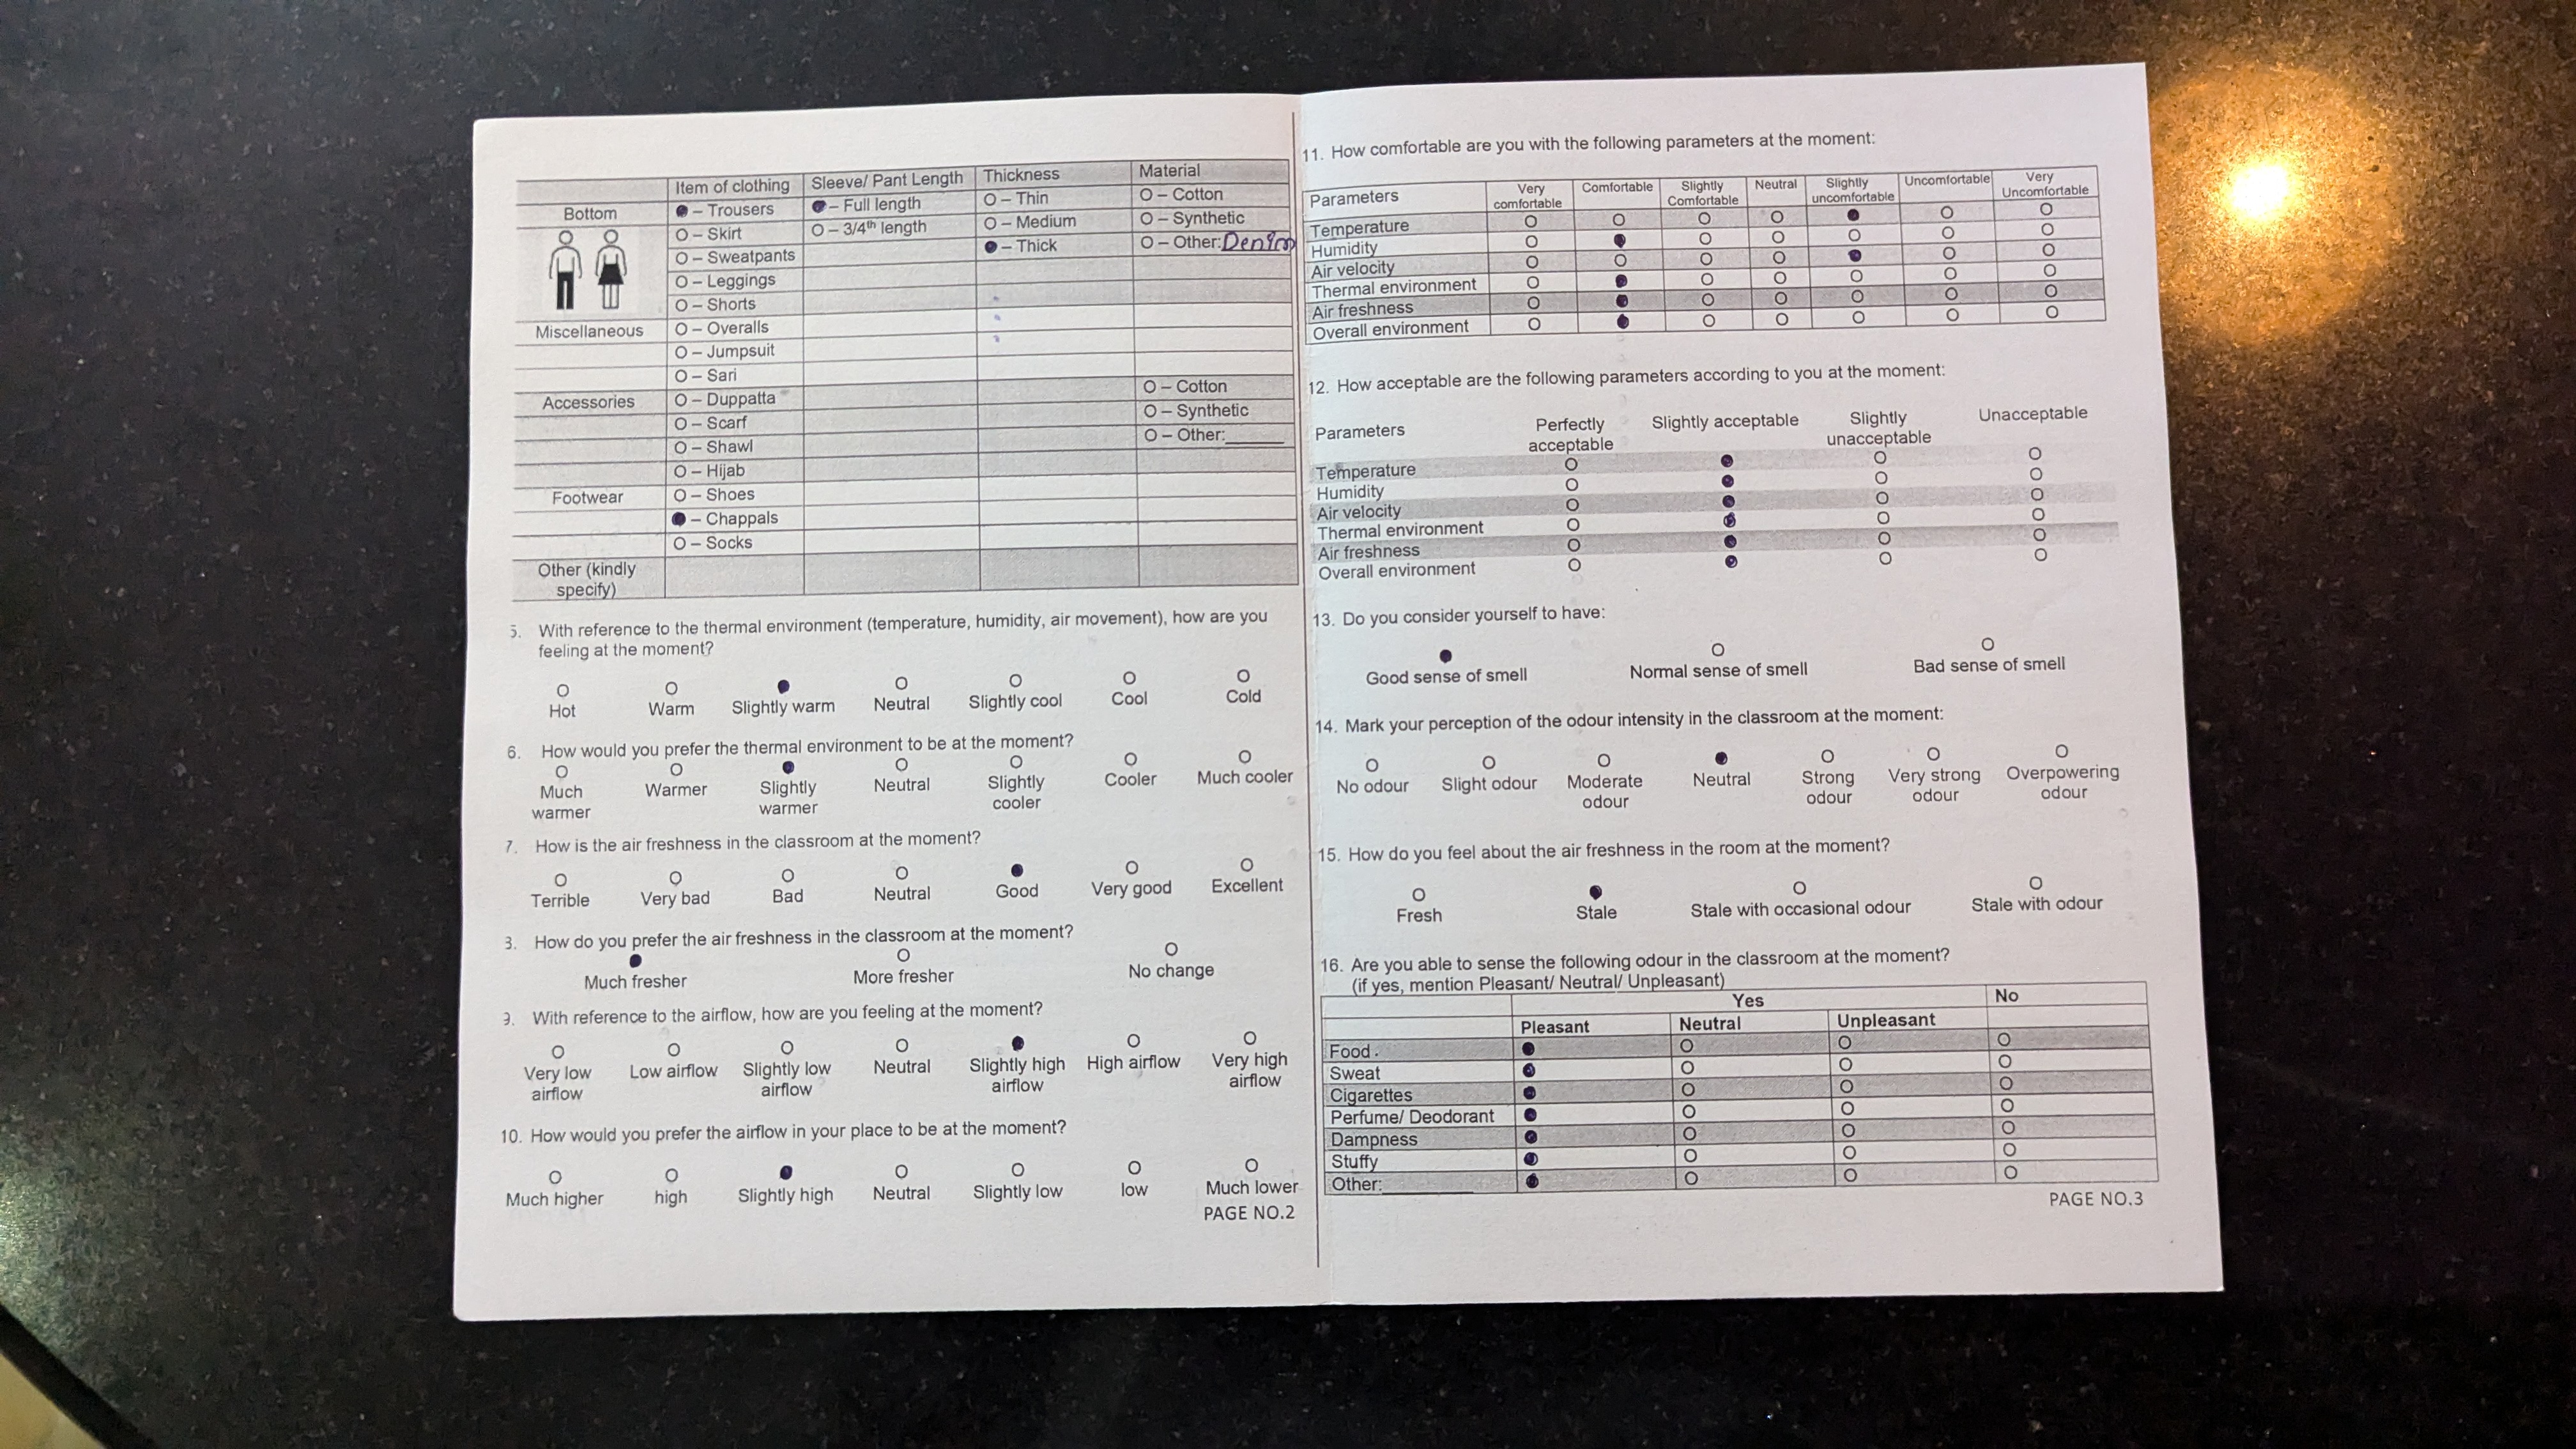 Item of clothing Sleeve/ Pant Length Thickness Material
Bottom ● – Trousers ● – Full length O – Thin O – Cotton
O – Skirt O – 3/4th length O – Medium O – Synthetic
O – Sweatpants ● – Thick O – Other: Denim
O – Leggings
O – Shorts
Miscellaneous O – Overalls
O – Jumpsuit
O – Sari
Accessories O – Duppatta O – Cotton
O – Scarf O – Synthetic
O – Shawl O – Other:______
O – Hijab
Footwear O – Shoes
● – Chappals
O – Socks
Other (kindly
specify)
5. With reference to the thermal environment (temperature, humidity, air movement), how are you
feeling at the moment?
O O ● O O O O
Hot Warm Slightly warm Neutral Slightly cool Cool Cold
6. How would you prefer the thermal environment to be at the moment?
O O ● O O O O
Much Warmer Slightly Neutral Slightly Cooler Much cooler
warmer warmer cooler
7. How is the air freshness in the classroom at the moment?
O O O O ● O O
Terrible Very bad Bad Neutral Good Very good Excellent
3. How do you prefer the air freshness in the classroom at the moment?
● O O
Much fresher More fresher No change
9. With reference to the airflow, how are you feeling at the moment?
O O O O ● O O
Very low Low airflow Slightly low Neutral Slightly high High airflow Very high
airflow airflow airflow airflow
10. How would you prefer the airflow in your place to be at the moment?
O O ● O O O O
Much higher high Slightly high Neutral Slightly low low Much lower
PAGE NO.2
11. How comfortable are you with the following parameters at the moment:
Parameters Very Comfortable Slightly Neutral Slightly Uncomfortable Very
comfortable Comfortable uncomfortable Uncomfortable
Temperature O O O O ● O O
Humidity O ● O O O O O
Air velocity O O O O ● O O
Thermal environment O ● O O O O O
Air freshness O ● O O O O O
Overall environment O ● O O O O O
12. How acceptable are the following parameters according to you at the moment:
Parameters Perfectly Slightly acceptable Slightly Unacceptable
acceptable unacceptable
Temperature O ● O O
Humidity O ● O O
Air velocity O ● O O
Thermal environment O ● O O
Air freshness O ● O O
Overall environment O ● O O
13. Do you consider yourself to have:
● O O
Good sense of smell Normal sense of smell Bad sense of smell
14. Mark your perception of the odour intensity in the classroom at the moment:
O O O ● O O O
No odour Slight odour Moderate Neutral Strong Very strong Overpowering
odour odour odour odour
15. How do you feel about the air freshness in the room at the moment?
O ● O O
Fresh Stale Stale with occasional odour Stale with odour
16. Are you able to sense the following odour in the classroom at the moment?
(if yes, mention Pleasant/ Neutral/ Unpleasant)
Yes No
Pleasant Neutral Unpleasant
Food . ● O O O
Sweat ● O O O
Cigarettes ● O O O
Perfume/ Deodorant ● O O O
Dampness ● O O O
Stuffy ● O O O
Other:__________ ● O O O
PAGE NO.3